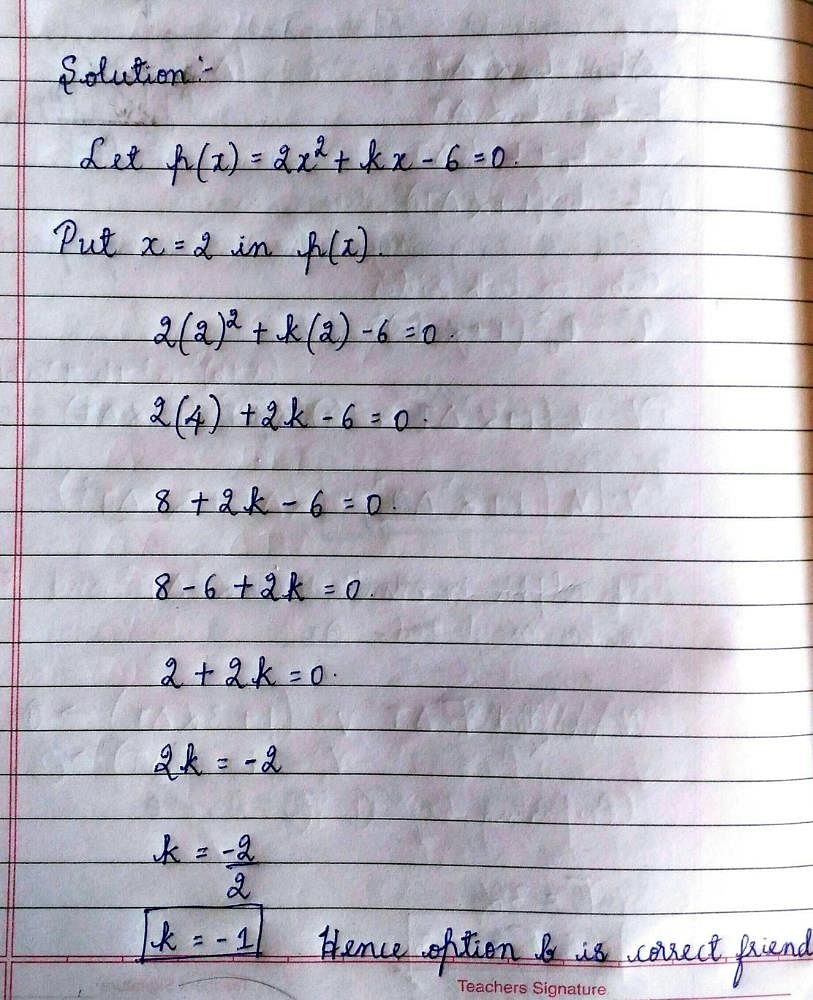 Solution :-
Let p(x) = 2x² + kx - 6 = 0.
Put x = 2 in p(x).
2(2)² + k(2) - 6 = 0.
2(4) + 2k - 6 = 0.
8 + 2k - 6 = 0.
8 - 6 + 2k = 0.
2 + 2k = 0.
2k = -2
k = -2/2
k = -1 Hence option b is correct friend
Teachers Signature